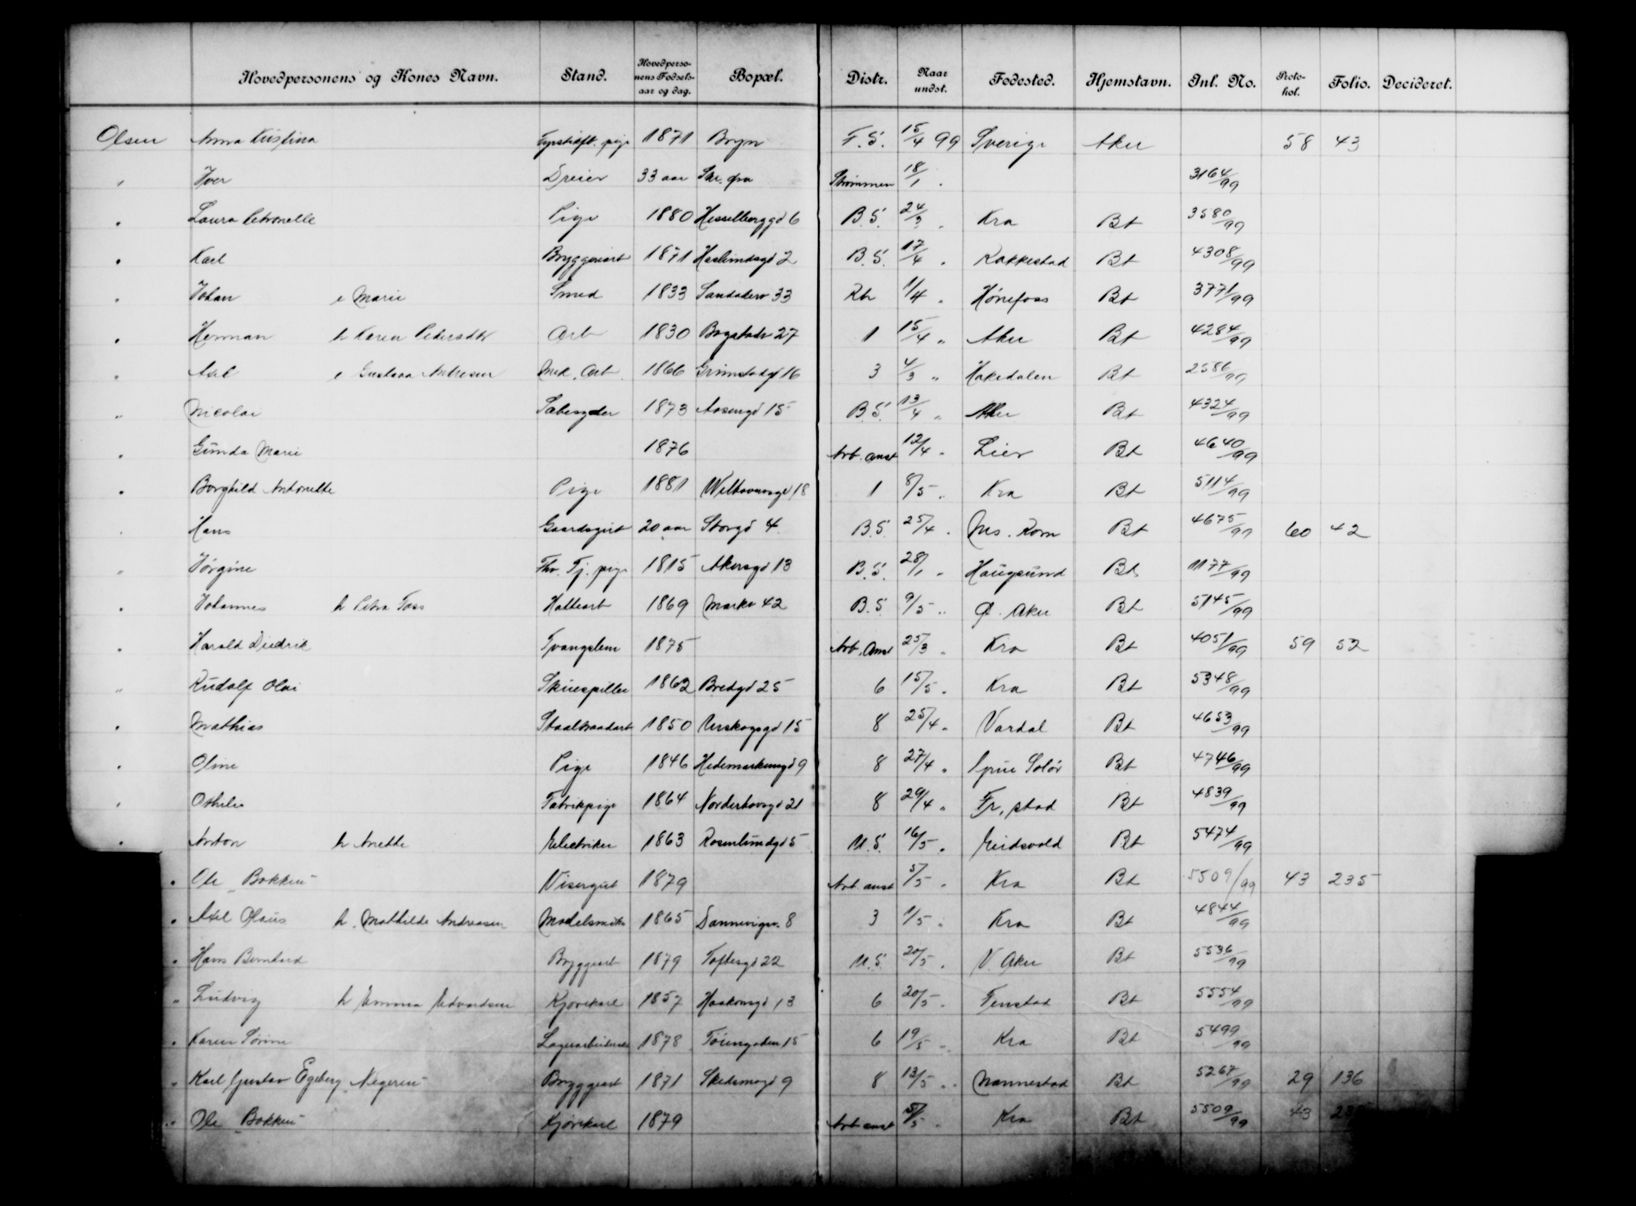 Hovedpersonens og Kones Navn. Stand. Hovedpersonens Fødselsaar og dag. Bopæl. Distr. Naar undst. Fødested. Hjemstavn. Inl. No. Protokol. Folio. Decideret.
Olsen Anna Kristina 1871 Bryn F.S. 15/4 99 Sverige Aker 58 43
" Iver Dreier 33 aar Strømmen 18/1 " 3164/99
" Laura Petronelle Pige 1880 Hesselberggd 6 B.S. 24/3 " Kra Bt 3580/99
" Karl Bryggeriarb 1871 2 B.S. 17/4 " Rakkestad Bt 4308/99
" Johan e Marie Smed 1833 Sandakerv 33 1/4 " Hønefoss Bt 3771/99
" Herman h Karen Pedersdtr Arb 1830 Bogstadv 27 1 15/4 " Aker Bt 4284/99
" e Gustava Andresen Arb. 1866 Grimstadgd 16 3 4/3 " Hakedalen Bt 2586/99
" Nicolai Sæbesyder 1873 15 B.S. 13/4 " Aker Bt 4324/99
" Gunda Marie 1876 Arb. anst 12/4 " Lier Bt 4640/99
" Borghild Antonette Pige 1881 18 1 8/5 " Kra Bt 5114/99
" Hans Gaardsgut 20 aar Storgd 4 B.S. 25/4 " Nes. Rom Bt 4675/99 60 42
" Jørgine Fhv. Tj. pige 1815 Akersgd 13 B.S. 28/1 " Haugsund Bt 1177/99
" Johannes h Petra Foss 1869 Markv 42 B.S. 9/5 " Ø. Aker Bt 5145/99
" Harald Diedrik Tvangslem 1875 Arb. Anst 25/3 " Kra Bt 4051/99 59 52
" Rudolf Olai Skuespiller 1862 Bredgd 25 6 15/5 " Kra Bt 5348/99
" Mathias Staaltraadarb 1850 Urskogsgd 15 8 25/4 " Vardal Bt 4653/99
" Oline Pige 1846 Hedemarkensgd 9 8 27/4 " Grue Solør Bt 4746/99
" Othilie Fabrikpige 1864 Norderhovsgd 21 8 29/4 " Fr. stad Bt 4839/99
" Anton h Anette Elektriker 1863 Rosenlundgd 5 U.S. 16/5 " Eidsvold Bt 5474/99
" Ole "Bokken" Visergut 1879 Arb anst 5/5 " Kra Bt 5509/99 43 235
" Axel Olaus h. Mathilde Andreasen Modelsnedk 1865 Dannevigsv. 8 3 1/5 " Kra Bt 4844/99
" Hans Bernhard Bryggeriarb 1879 Toftesgd 22 U.S. 20/5 " V. Aker Bt 5536/99
" Ludvig h Emma Edvardsen Kjørekarl 1857 Haakonsgd 13 6 20/5 " Fenstad Bt 5554/99
" Karen Sørine Lagerarbeiderske 1878 Tøiengaden 15 6 19/5 " Kra Bt 5499/99
" Karl Gustav Egeberg "Negeren" Bryggeriarb 1871 Skedsmogd 9 8 13/5 " Mannestad Bt 5267/99 29 136
" Ole "Bokken" Kjørekarl 1879 Arb anst 5/5 " Kra Bt 5509/99 43